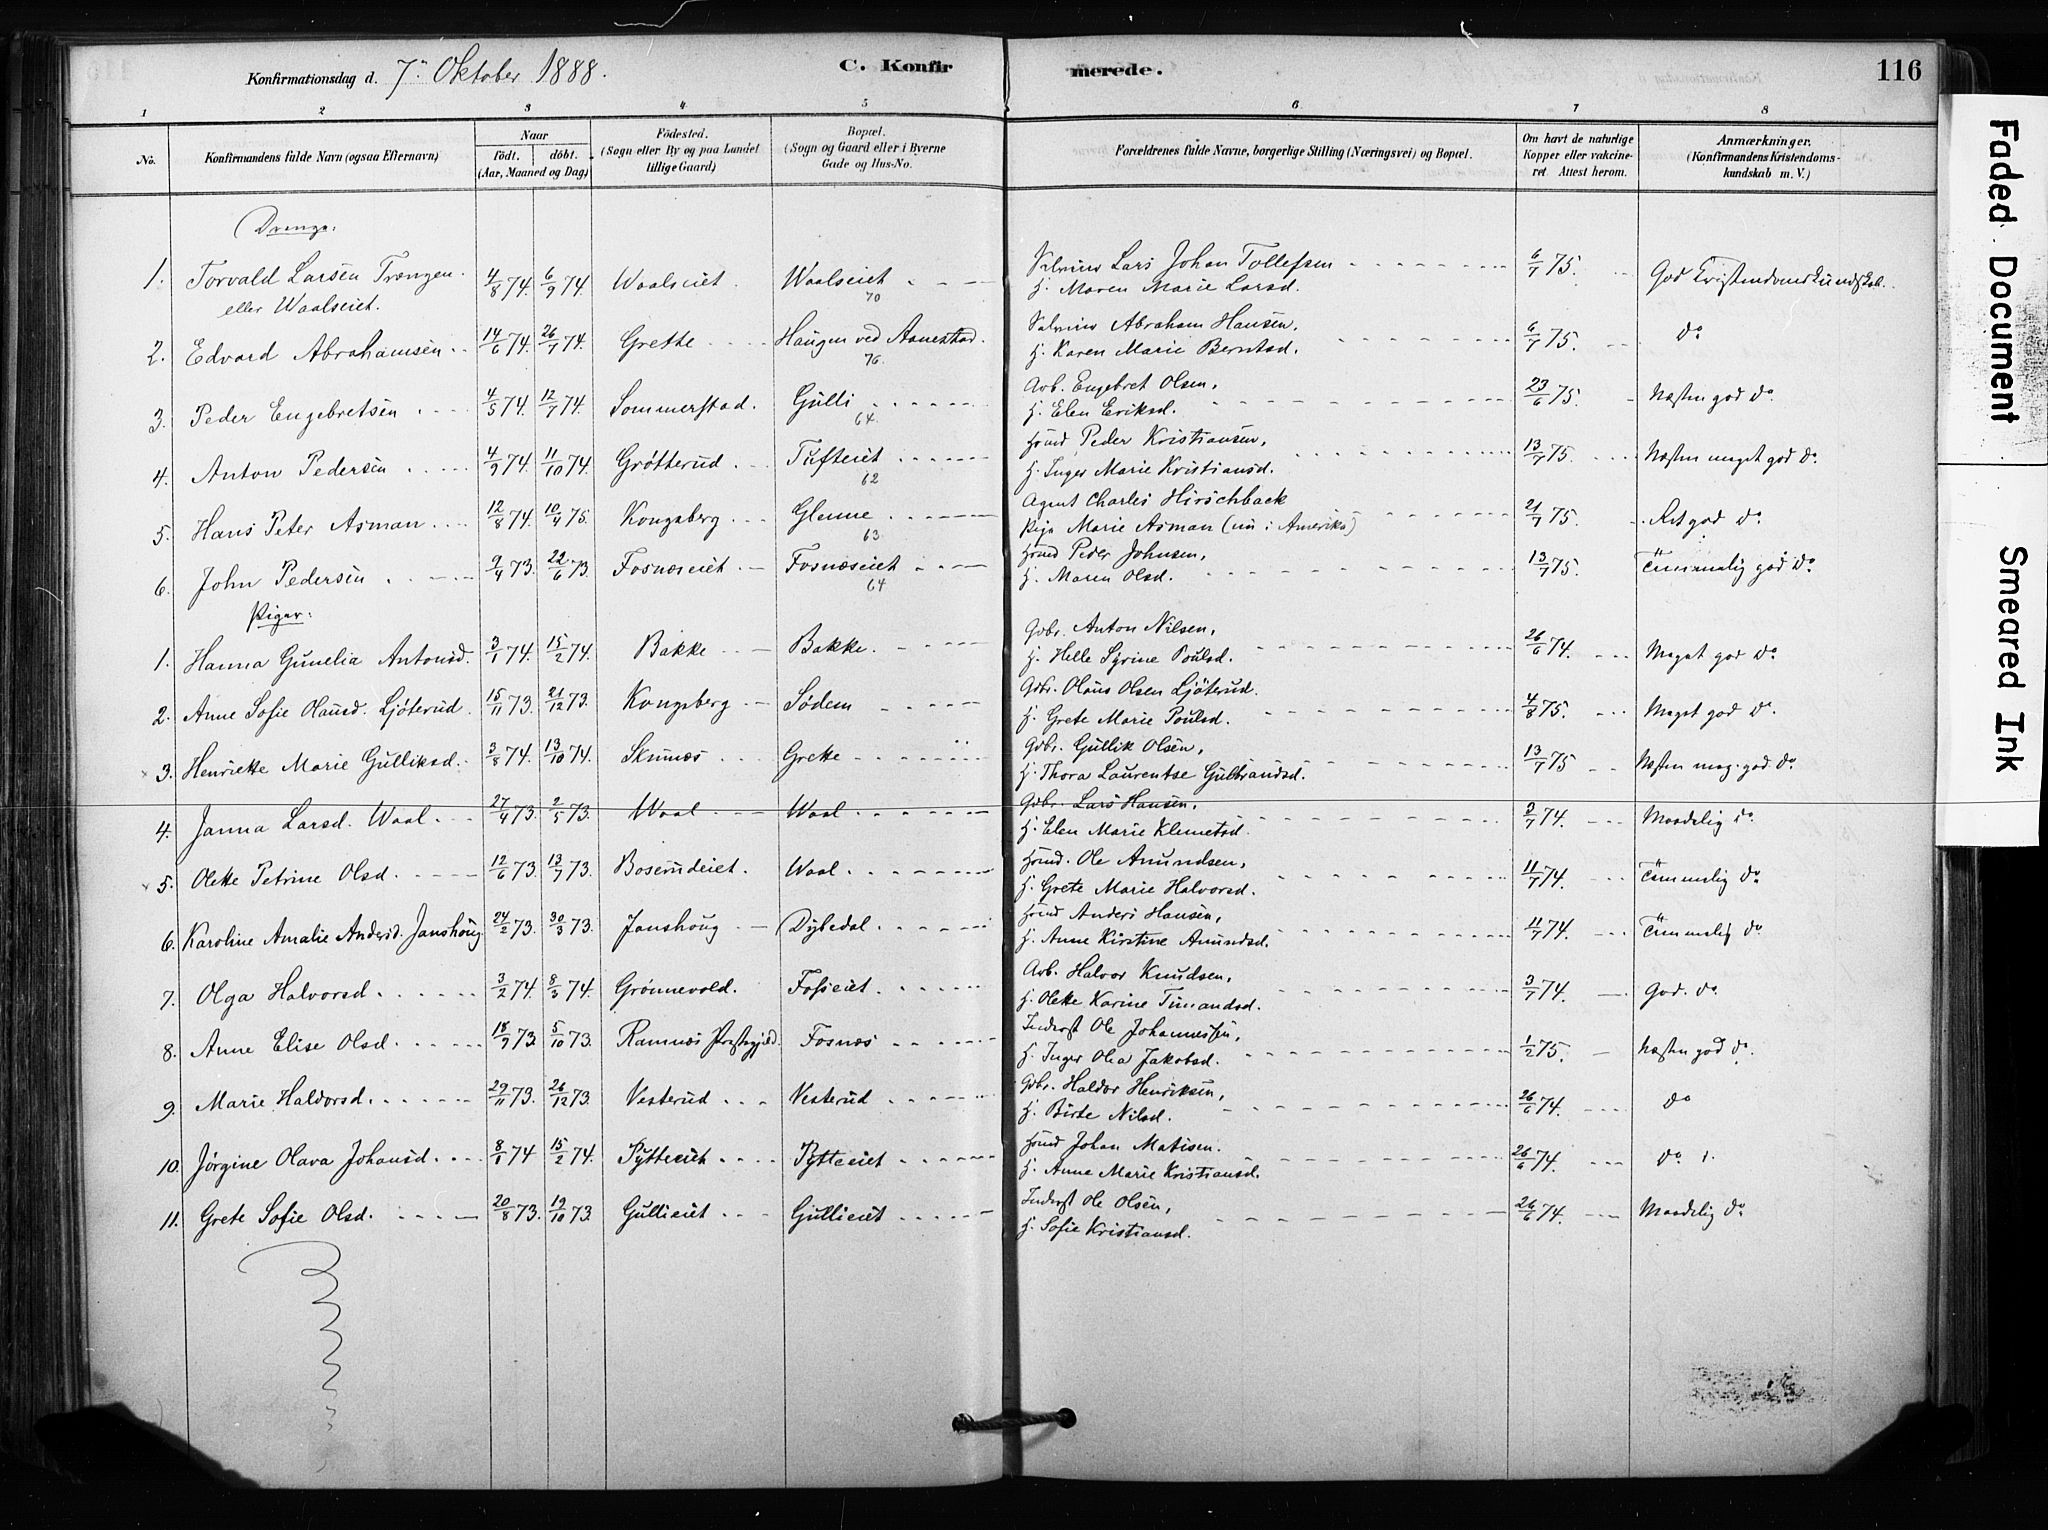 Konfirmationsdag d. 7de Oktober 1888. C. Konfirmerede. 116
1 2 3 4 5 6 7 8
No. Konfirmandens fulde Navn (ogsaa Efternavn) Naar født. døbt. (Aar, Maaned og Dag) Fødested. (Sogn eller By og paa Landet tillige Gaard) Bopæl. (Sogn og Gaard eller i Byerne Gade og Hus-No. Forældrenes fulde Navne, borgerlige Stilling (Næringsvei) og Bopæl. Om havt de naturlige Kopper eller vakcineret. Attest herom. Anmærkninger. (Konfirmandens Kristendomskundskab m. V.)
Drenge:
1. Torvald Larsen Trængen 4/8 74. 6/9 74. Waalseiet Waalseiet 70 Lars Johan Tollefsen 6/7 75. God Kristendomskundskab.
eller Waalseiet. h. Maren Marie Larsd.
2. Edvard Abrahamsen 14/6 74. 26/7 74. Grette Haugen ved Asnestad. 76. Abraham Hansen, 6/7 75. do
h. Karen Marie Berntsd.
3. Peder Engebretsen 4/5 74. 12/7 74. Sommerstad. Gulli 64. Arb. Engebret Olsen, 23/6 75. Næsten god do
h. Elen Eriksd.
4. Anton Pedersen 4/9 74. 11/10 74. Grøtterud Tufteiet 62 Hmd Peder Kristiansen, 13/7 75. Næsten meget god do
h. Inger Marie Kristiansd.
5. Hans Peter Asman 12/8 74. 10/4 75. Kongsberg Glenne 63 Agent Charles Hirschback 21/7 75. Ret god do
Pige Marie Asman (nu i Amerika)
6. John Pedersen 9/4 73. 22/6 73. Fosnæseiet Fosnæseiet 64 Hmd Peder Johnsen, 13/7 75. Temmelig god do
h. Maren Olsd.
Piger:
1. Hanna Gunelia Antonsd. 3/1 74. 15/2 74. Bakke Bakke Gbr. Anton Nilsen, 26/6 74. Meget god do
h. Helle Syrine Poulsd.
2. Anne Sofie Olausd. Ljøterud 15/11 73. 21/12 73. Kongsberg Sødem Gbr. Olaus Olsen Ljøterud. 4/8 75. Meget god do
h. Grete Marie Poulsd.
3. Henriette Marie Gulliksd. 3/8 74. 13/10 74. Skinnes Grette Gbr. Gullik Olsen, 13/7 75 Næsten meg. god do
h. Thora Laurentse Gulbrandsd.
4. Janna Larsd. Waal 27/4 73. 2/5 73. Waal Waal Gbr. Lars Hansen, 3/7 74. Maadelig do
h. Elen Marie Klemetsd.
5. Olette Petrine Olsd. 12/6 73. 13/7 73. Boserudeiet. Waal Hmd. Ole Amundsen, 11/7 74. Temmelig do
h. Grete Marie Halvorsd.
6. Karoline Amalie Andersd. Janshoug 24/2 73. 30/3 73. Janshoug Dybedal Hmd Anders Hansen, 11/7 74. Temmelig do
h. Anne Kirstine Amundsd.
7. Olga Halvorsd. 3/2 74. 8/3 74. Grønnevold. Foseiet Arb. Halvor Knudsen, 3/7 74. God. do
h. Olette Karine Timandsd.
8. Anne Elise Olsd. 18/9 73. 5/10 73. Ramnæs Præstegjæld Fosnæs Inderst Ole Johannessen, 1/2 75. Næsten god do
h. Inger Olea Jakobsd.
9. Marie Haldorsd. 29/11 73. 26/12 73. Vesterud Vesterud Gbr. Haldor Henriksen, 26/6 74. do
h. Birte Nilsd.
10. Jørgine Olava Johansd. 8/1 74 15/2 74. Pytteeiet Pytteeiet Hmd Johan Matisen. 26/6 74. do
h. Anne Marie Kristiansd.
11. Grete Sofie Olsd. 20/8 73. 19/10 73. Gullieiet Gullieiet Inderst Ole Olsen, 26/6 74. Maadelig do
h. Sofie Kristiansd.
Faded Document
Smeared Ink